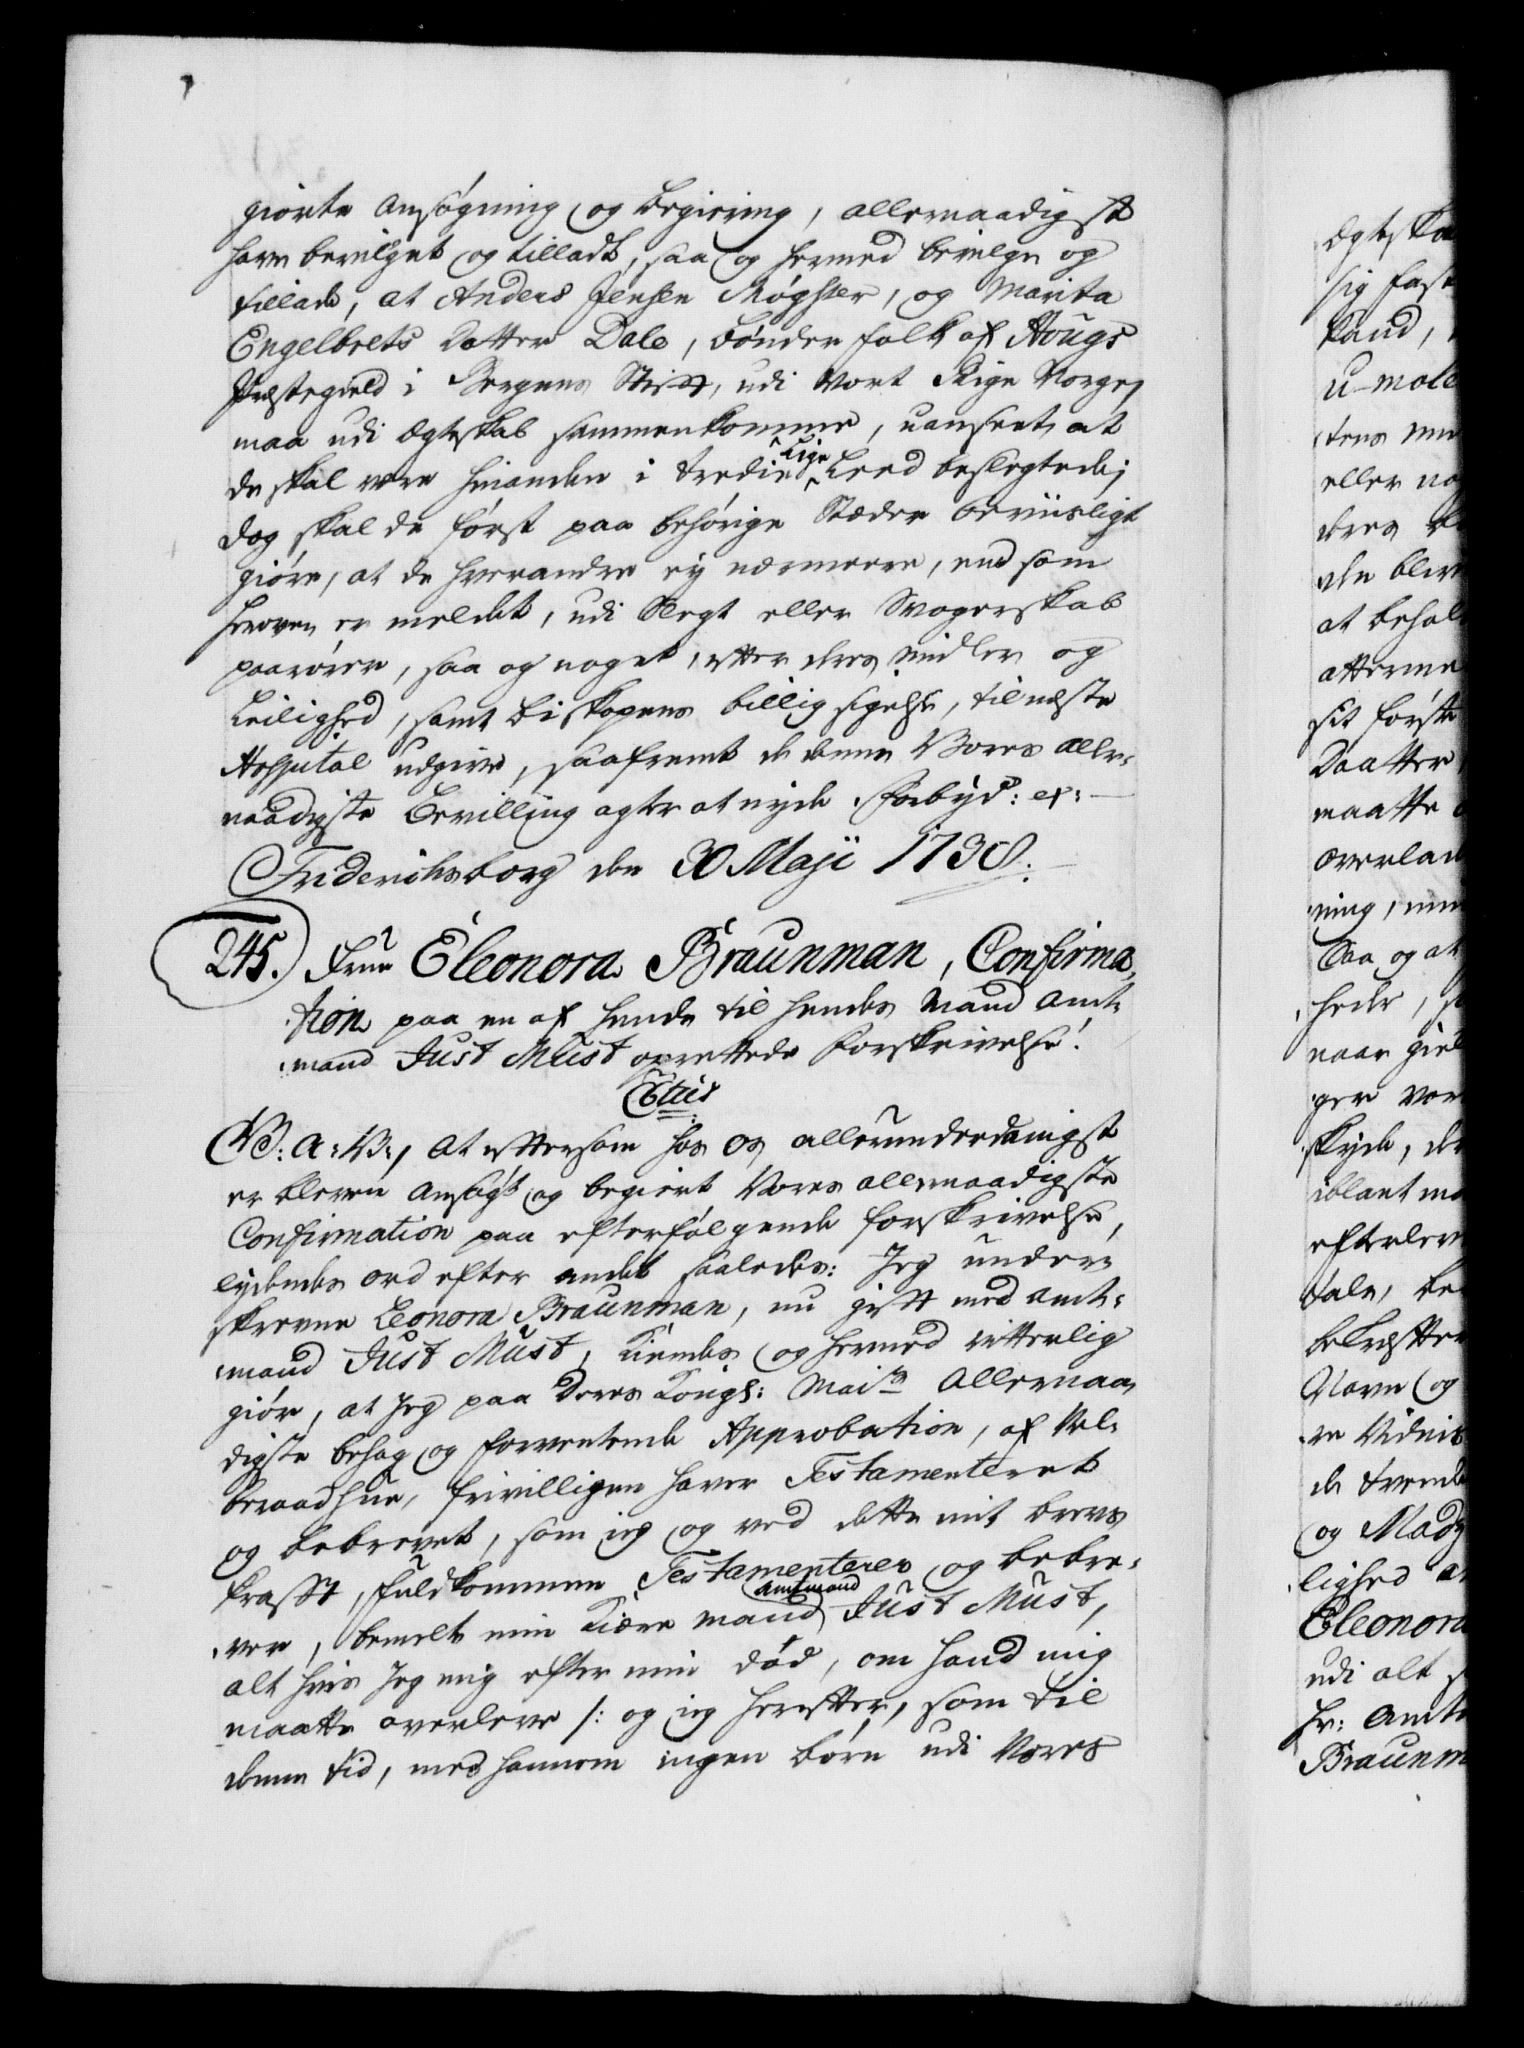 giorte Ansøgning og begiering, allernaadigst
have bevilget og tilladt, saa og hermed bevilge og
tillade, at Anders Jensen Møgster, og Marita
Engelbrets Datter Dale, bønder folk af Hougs
Præstegield i Bergens Stift, udi Vort Rige Norge,
maa udi Ægteskab sammenkomme, uanseet at
de skal være hinanden i tredie Lige Leed beslegtede;
dog skal de først paa behørige Stæder beviisligt
giøre, at de hverandre ey nærmere, end som
heroven er meldet, udi Slegt eller Svogerskab
paarører, saa og noget, efter deres midler og
Leilighed, samt Biskopens billig sigelse, til næste
Hospital udgive, saafremt de denne Vores aller-
naadigste Bevilling agter at nyde. Forbyd: etc:
Friderichsborg den 30 Maji 1738.
245. Frue Eleonora Braunman, Confirma-
tion paa en af hende til hendes Mand Amt-
mand Just Must oprettede Forskrivelse.
C6tus
V: A: V:, at eftersom hos os allerunderdanigst
er bleven Ansøgt og begiert Vores allernaadigste
Confirmation paa efterfølgende forskrivelse,
lydendes ord efter andet saaledes: Jeg under-
skrevne Leonora Braunman, nu gift med Amt-
mand Just Must, Kiendes og hermed vitterlig
giør, at Jeg paa Deres Kongl: Mai:ts Allernaa-
digste behag og forventende Approbation, af Vel-
beraad hue, frivilligen haver Testamenteret
og bebrevet, som jeg og ved dette mit brevs
kraft, fuldkommen Testamenterer og bebre-
ver, bemelte min Kiære mand Amtmand Just Must,
alt hvis Jeg mig efter min død, om hand mig
maatte overleve /: og jeg herefter, som til
denne tid, med hannem ingen børn udi Vores
Ægteska
sig fast
eller no
at behol
sit første
Daatter
maatte
overlad
Saa og at
naar giel
skyde, de
iblant
efterlev
Navn og
og Mad
lighed
Eleonora
udi alt
Hr: Amt
Braunm